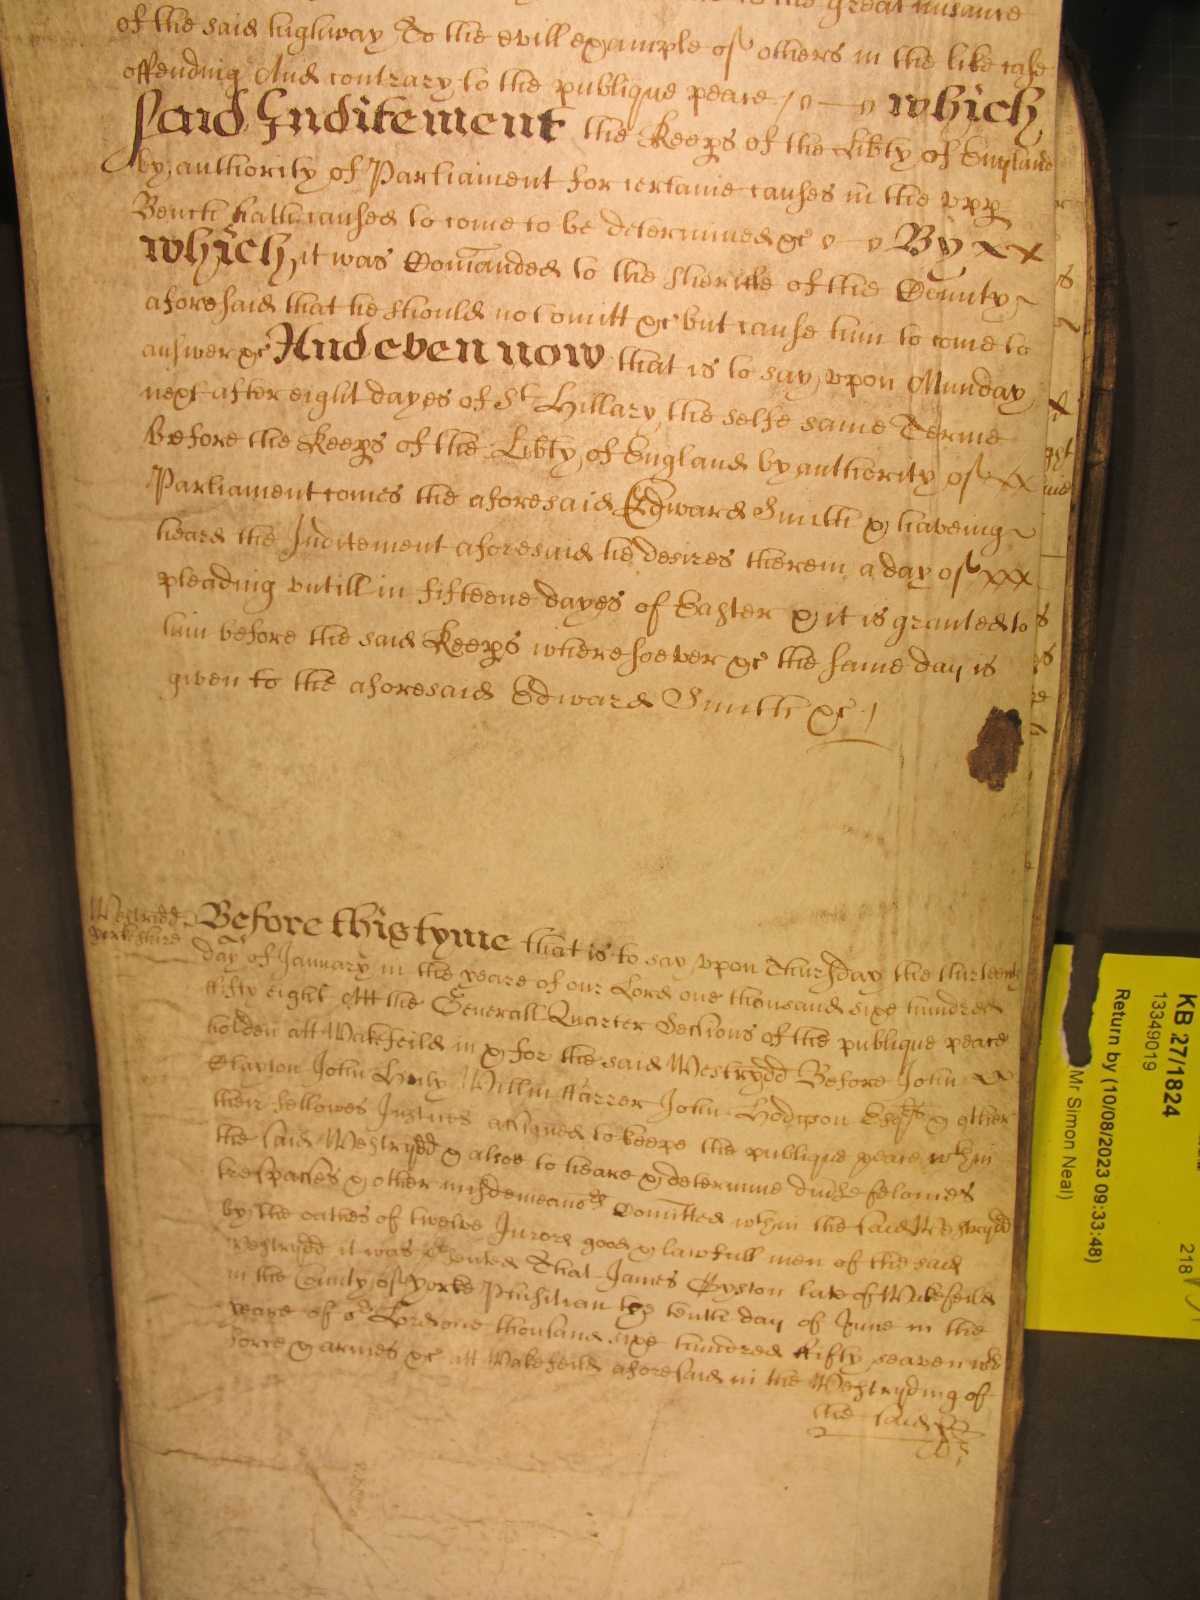 to the great nusance
of the said highway To the evill example of others in the like case
offending And contrary to the publique peace / o — o which
said Inditement the Keeps of the Libty of England
by authority of Parliament for certaine causes in the vpp
Bench hath caused to come to be determined &c o — o By x x
which it was Comanded to the Sheriffe of the County
aforesaid that he should not omitt &c but cause him to come to
answer &c And even now that is to say vpon Munday
next after eight dayes of St Hillary the selfe same Terme
before the Keeps of the Libty of England by authority of xx
Parliament comes the aforesaid Edward Smith & haveing
heard the Inditement aforesaid he desires therein a day of xxx
pleading vntill in fifteene dayes of Easter & it is granted to
him before the said Keeps wheresoever &c the same day is
given to the aforesaid Edward Smith &c /
Westridd
Yorkeshire
Before this tyme that is to say vpon Thursday the thirteenth
day of January in the yeare of our Lord one thousand sixe hundred
ffifty eight Att the Generall Quarter Sections of the publique peace
holden att Wakefeild in & for the said Westrydd Before John xx
Clayton John Willm ffarrer John Hodgson Esqrs & other
their fellowes Justices assigned to keepe the publique peace wthin
the said Westrydd & alsoe to heare & determine divse felonies
trespasses & other misdemeanors Comitted wthin the said Westrydd
by the oathes of twelve Jurors good & lawfull men of the said
Westrydd it was psented That James Gyston late of Wakefeild
in the County of Yorke Phisitian the tenth day of June in the
yeare of or Lord one thousand sixe hundred ffifty seaven wth
force & armes &c att Wakefeild aforesaid in the Westryding of
the said
KB 27/1824
13349019
Return by (10/08/2023 09:33:48)
Mr Simon Neal)
218